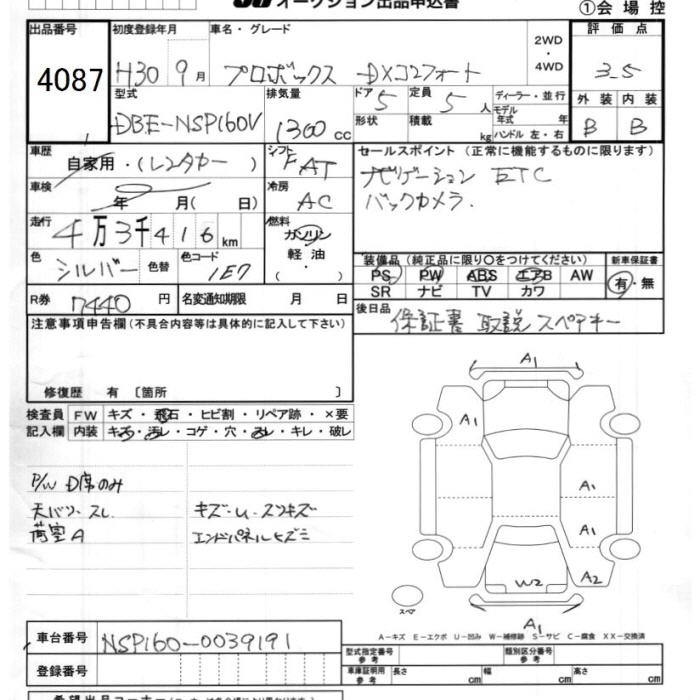 オークション出品申込書
①会場控
出品番号 4087
初度登録年月 H30 9月
車名・グレード プロボックス DXコンフォート
2WD・4WD
評価点 3.5
型式 DBE-NSP160V
排気量 1300 cc
ドア 5 定員 5人
形状 積載 kg
ディーラー・並行
モデル年式 年
ハンドル 左・右
外装 内装
B B
車歴 自家用・(レンタカー)
シフト F AT
セールスポイント (正常に機能するものに限ります)
ナビゲーション ETC
バックカメラ.
車検 年 月( 日)
冷房 AC
走行 千万3千416km
燃料 ガソリン・軽油・
色 シルバー 色替
色コード 1E7
装備品 (純正品に限り○をつけてください)
新車保証書
PS PW ABS エアB AW
SR ナビ TV カワ
有・無
R券 7440円
名変通知期限 月 日
後日品 保証書 取説 スペアキー
注意事項申告欄(不具合内容等は具体的に記入して下さい)
修復歴 有 〔箇所 〕
検査員記入欄
FW キズ・飛石・ヒビ割・リペア跡・×要
内装 キズ・汚レ・コゲ・穴・スレ・キレ・破レ
P/W D席のみ
天バリ・スレ
荷室A
キズ・U・スリキズ
エンドパネルヒズミ
A1
A1
A1
A1
A2
W2
A1
スペア
A-キズ E-エクボ U-凹み W-補修跡 S-サビ C-腐食 XX-交換済
車台番号 NSP160-0039191
登録番号
型式指定番号 参考
類別区分番号 参考
車庫証明用 参考 長さ cm 幅 cm 高さ cm